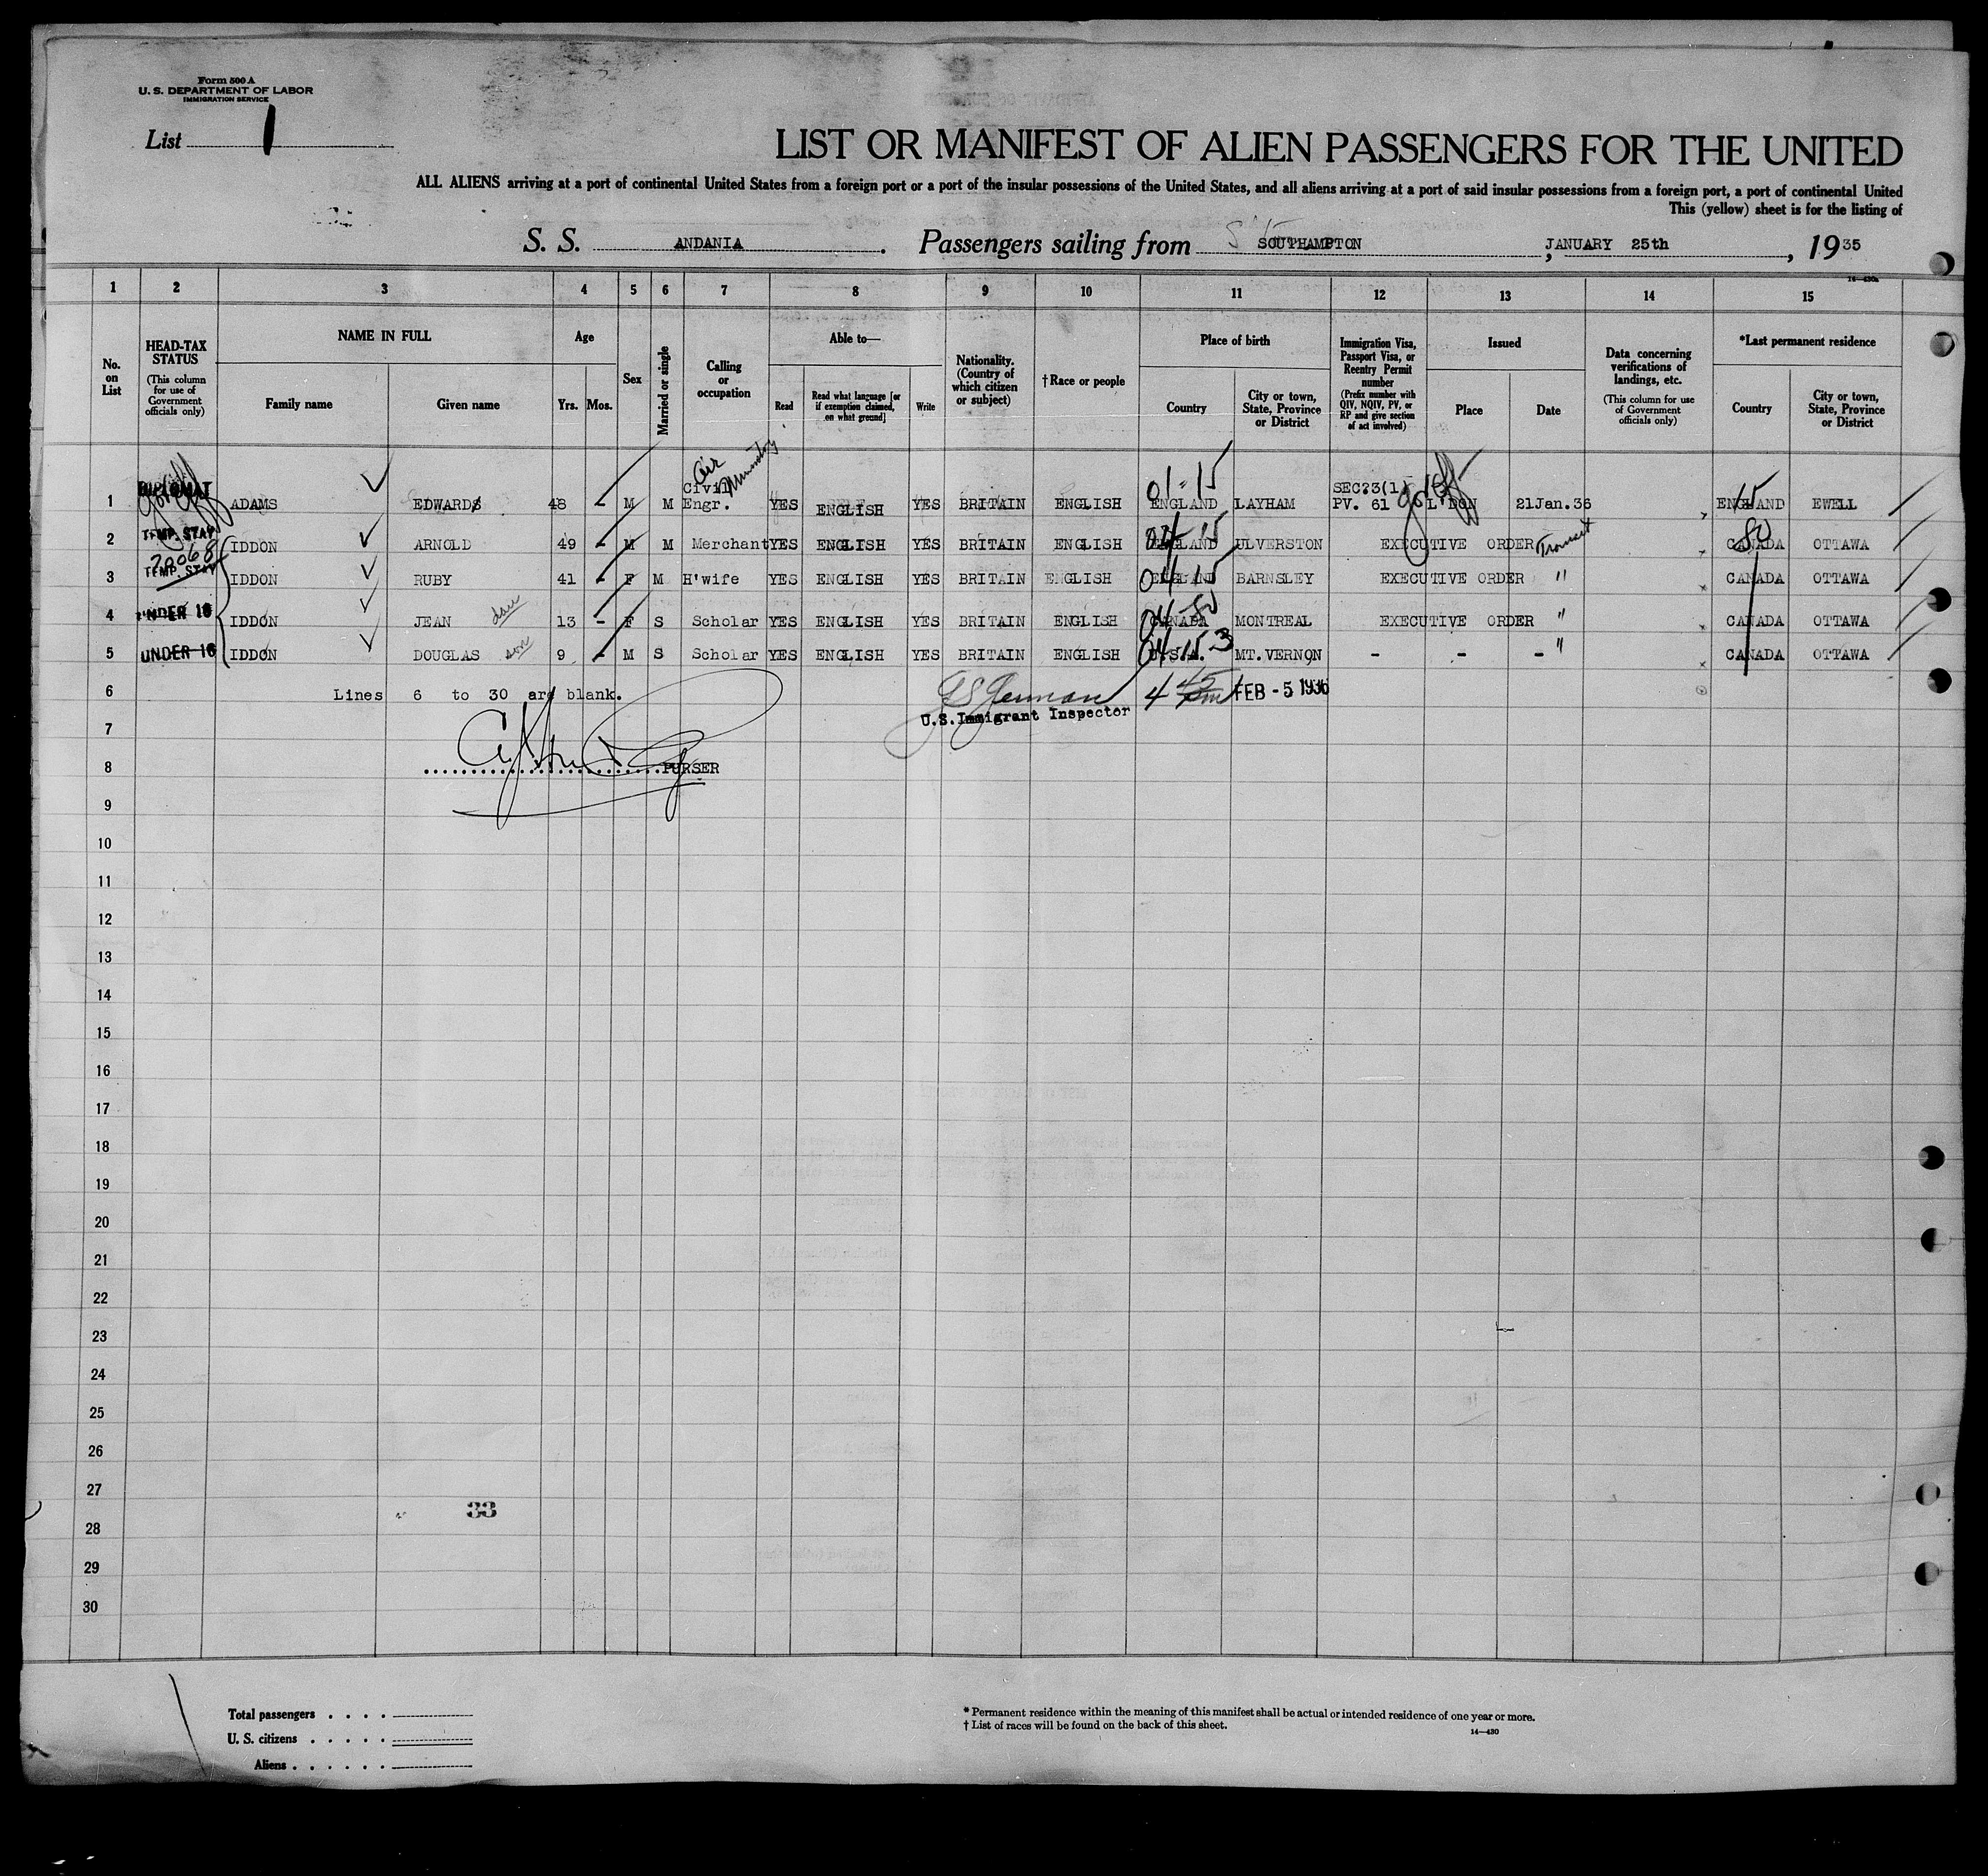 Form 500 A
U. S. DEPARTMENT OF LABOR
IMMIGRATION SERVICE
List 1
LIST OR MANIFEST OF ALIEN PASSENGERS FOR THE UNITED
ALL ALIENS arriving at a port of continental United States from a foreign port or a port of the insular possessions of the United States, and all aliens arriving at a port of said insular possessions from a foreign port, a port of continental United
This (yellow) sheet is for the listing of
S. S. ANDANIA. Passengers sailing from SOUTHAMPTON, JANUARY 25th, 1935
14—430a
1 2 3 4 5 6 7 8 9 10 11 12 13 14 15
No. on List
HEAD-TAX STATUS (This column for use of Government officials only)
NAME IN FULL
Family name
Given name
Age
Yrs. Mos.
Sex
Married or single
Calling or occupation
Able to—
Read
Read what language [or if exemption claimed, on what ground]
Write
Nationality. (Country of which citizen or subject)
†Race or people
Place of birth
Country
City or town, State, Province or District
Immigration Visa, Passport Visa, or Reentry Permit number (Prefix number with QIV, NQIV, PV, or RP and give section of act involved)
Issued
Place
Date
Data concerning verifications of landings, etc. (This column for use of Government officials only)
*Last permanent residence
Country
City or town, State, Province or District
Air Ministry
1 DIPLOMAT ADAMS EDWARDS 48 - M M Civil Engr. YES ENGLISH YES BRITAIN ENGLISH 01-15 ENGLAND LAYHAM SEC?3(1) PV. 61 LONDON 21Jan.36 15 ENGLAND EWELL
2 TEMP. STAY IDDON ARNOLD 49 - M M Merchant YES ENGLISH YES BRITAIN ENGLISH 04 15 ENGLAND ULVERSTON EXECUTIVE ORDER Transit 80 CANADA OTTAWA
3 TEMP. STAY IDDON RUBY 41 - F M H'wife YES ENGLISH YES BRITAIN ENGLISH 04 15 ENGLAND BARNSLEY EXECUTIVE ORDER " CANADA OTTAWA
4 UNDER 16 IDDON JEAN dau 13 - F S Scholar YES ENGLISH YES BRITAIN ENGLISH 04-80 CANADA MONTREAL EXECUTIVE ORDER " CANADA OTTAWA
5 UNDER 16 IDDON DOUGLAS son 9 - M S Scholar YES ENGLISH YES BRITAIN ENGLISH 04 15 3 U.S.A. MT. VERNON - - - " CANADA OTTAWA
6 Lines 6 to 30 are blank. 4 45 pm FEB - 5 1936
U.S. Immigrant Inspector
7
8 PURSER
9
10
11
12
13
14
15
16
17
18
19
20
21
22
23
24
25
26
27
33
28
29
30
Total passengers
U. S. citizens
Aliens
* Permanent residence within the meaning of this manifest shall be actual or intended residence of one year or more.
† List of races will be found on the back of this sheet.
14—430